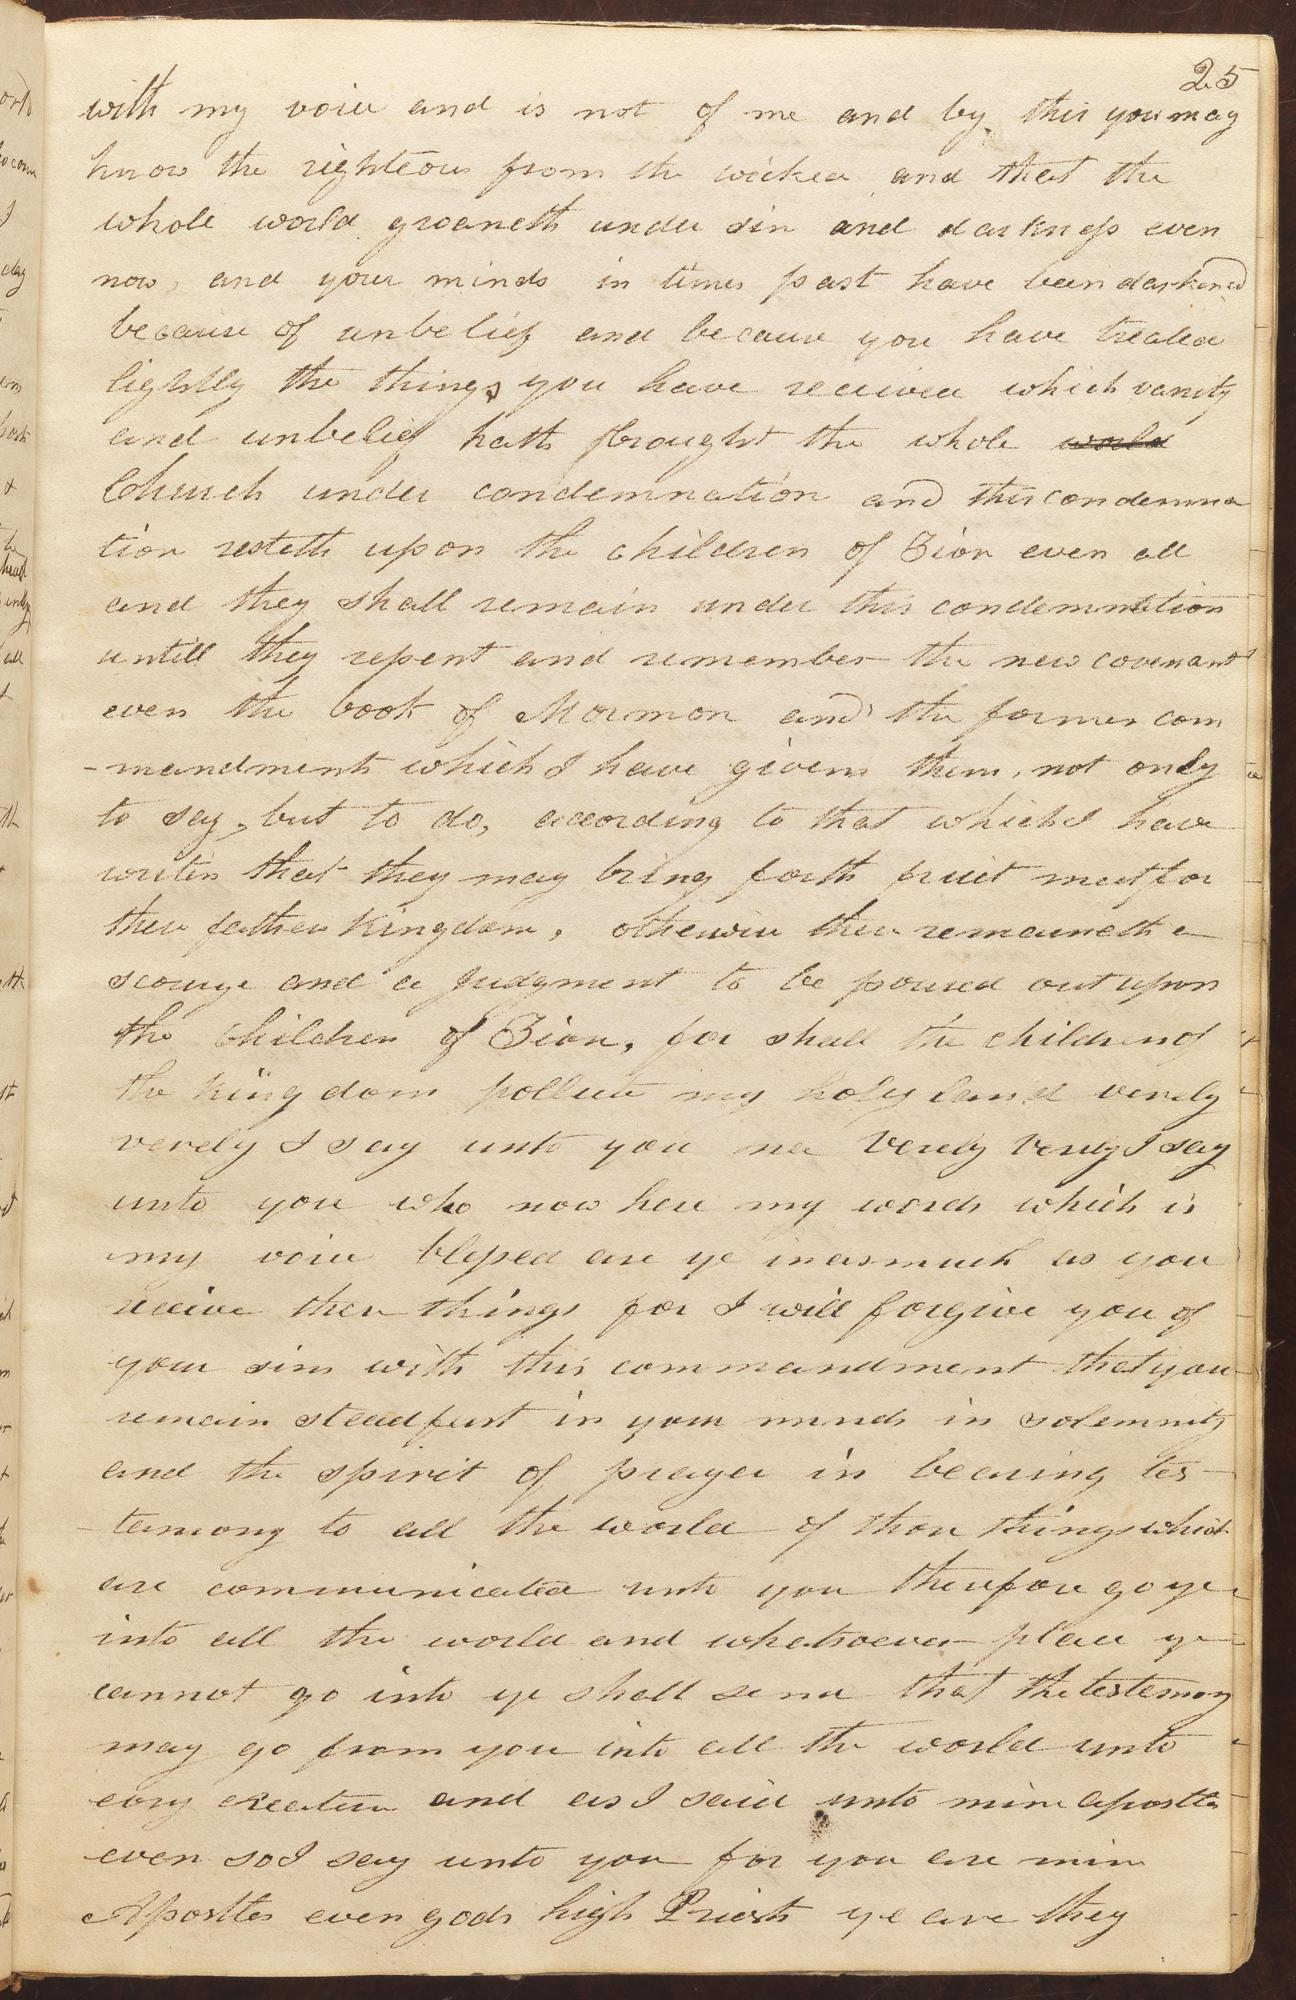 25
with my voice and is not of me and by this you may
know the righteous from the wicked and that the
whole world groaneth under sin and darkness even
now, and your minds in times past have been darkened
because of unbelief and because you have treated
lightly the things you have received which vanity
and unbelief hath brought the whole world
Church under condemnation and this condemna
tion resteth upon the children of Zion even all
and they shall remain under this condemnation
untill they repent and remember the new covenant
even the book of Mormon and the former com
-mandments which I have given them, not only
to say, but to do, according to that which I have
writen that they may bring forth fruit meet for
there fathers Kingdom, otherwise there remaineth a
scourge and a judgment to be poured out upon
the children of Zion, for shall the children of
the kingdom pollute my holy land verely
verely I say unto you na Verely Verely I say
unto you who now here my words which is
my voice blessed are ye inasmuch as you
receive these things for I will forgive you of
your sins with this commandment that you
remain steadfast in your minds in solemnity
and the spirit of prayer in bearing tes-
-temony to all the world of those things which
are communicated unto you therefore go ye
into all the world and whatsoever place ye
cannot go into ye shall send that the testemony
may go from you into all the world unto
evry creature and as I said unto mine apostles
even so I say unto you for you are mine
Apostles even gods high Priests ye are they